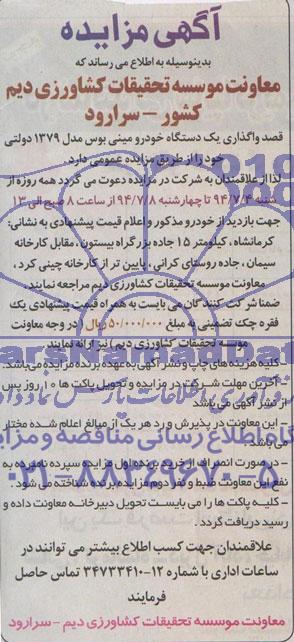 آگهی مزایده
بدینوسیله به اطلاع می رساند که
معاونت موسسه تحقیقات کشاورزی دیم
کشور – سرارود
قصد واگذاری یک دستگاه خودرو مینی بوس مدل ۱۳۷۹ دولتی
خود را از طریق مزایده عمومی دارد
لذا از علاقمندان به شرکت در مزایده دعوت می گردد همه روزه از
شنبه ۹۴/۷/۴ تا چهارشنبه ۹۴/۷/۸ از ساعت ۸ صبح الی ۱۳
جهت بازدید از خودرو مذکور و اعلام قیمت پیشنهادی به نشانی:
کرمانشاه، کیلومتر ۱۵ جاده بزرگراه بیستون، مقابل کارخانه
سیمان، جاده روستای کرانی، پایین تر از کارخانه چینی کرد،
معاونت موسسه تحقیقات کشاورزی دیم مراجعه نمایند.
ضمنا شرکت کنندگان می بایست به همراه قیمت پیشنهادی یک
فقره چک تضمینی به مبلغ ۵۰/۰۰۰/۰۰۰ ریال (در وجه معاونت
موسسه تحقیقات کشاورزی دیم) نیز ارائه نمایند
- کلیه هزینه های چاپ و نشر آگهی به عهده برنده مزایده می باشد.
- آخرین مهلت شرکت در مزایده و تحویل پاکت ها ۱۰ روز پس
از نشر آگهی می باشد
- این معاونت در پذیرش و رد هر یک از مبالغ اعلام شده مختار
می باشد.
- در صورت انصراف از خرید برنده اول مزایده سپرده نامبرده به
نفع این معاونت ضبط و نفر دوم مزایده برنده شناخته می شود.
- کلیه پاکت ها را می بایست تحویل دبیرخانه معاونت داده و
رسید دریافت گردد.
علاقمندان جهت کسب اطلاع بیشتر می توانند در
ساعات اداری با شماره ۱۲-۳۴۷۳۳۴۱۰ تماس حاصل
فرمایند
معاونت موسسه تحقیقات کشاورزی دیم – سرارود
ParsNamadData